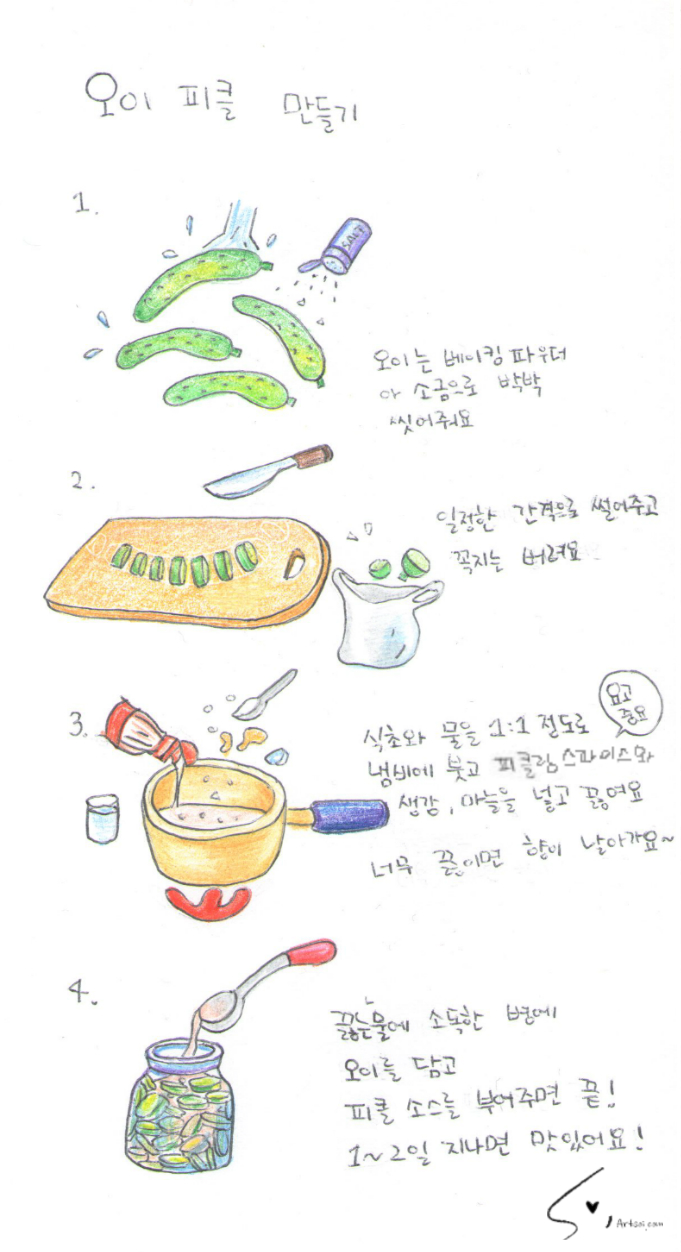 오이 피클 만들기
1.
SALT
오이는 베이킹 파우더
아 소금으로 박박
씻어줘요
2.
일정한 간격으로 썰어주고
꼭지는 버려요
3.
요고
중요
식초와 물을 1:1 정도로
냄비에 붓고 피클링 스파이스와
생강, 마늘을 넣고 끓여요
너무 끓이면 향이 날아가요~
4.
끓는물에 소독한 병에
오이를 담고
피클 소스를 부어주면 끝!
1~2일 지나면 맛있어요!